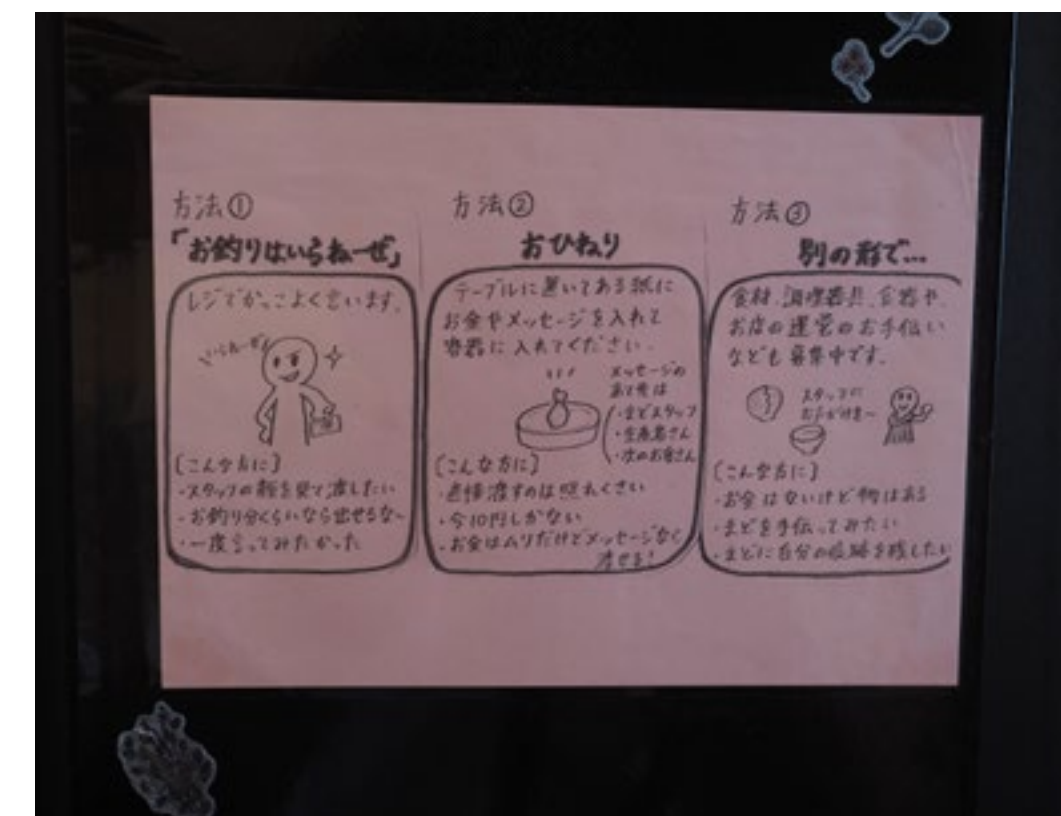 方法①
「お釣りはいらねーぜ」
レジでかっこよく言います。
いらねーぜ!
[こんな方に]
・スタッフの顔を見て渡したい
・お釣り分くらいなら出せるなー
・一度言ってみたかった
方法②
おひねり
テーブルに置いてある紙に
お金やメッセージを入れて
容器に入れてください.
メッセージの
あて先は
・まどスタッフ
・生産者さん
・次のお客さん
[こんな方に]
・直接渡すのは照れくさい
・今10円しかない
・お金はムリだけどメッセージなら
渡せる!
方法③
別の形で…
食材、調理器具、食器や、
お店の運営のお手伝い
なども募集中です。
スタッフに
おこえがけを〜
[こんな方に]
・お金はないけど物はある
・まどを手伝ってみたい
・まどに自分の痕跡を残したい